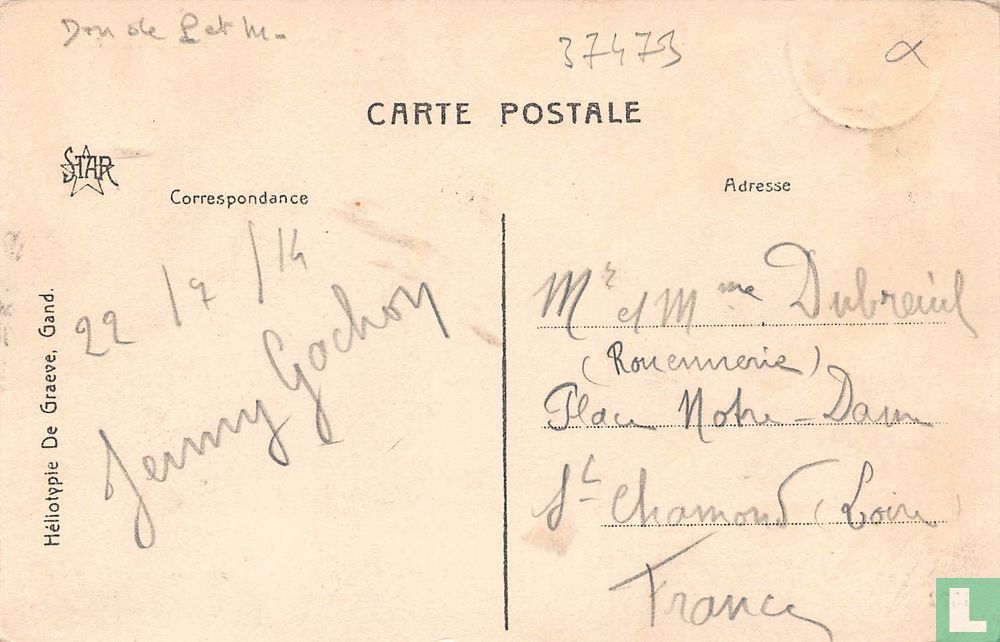 Don de L et M.
37473
CARTE POSTALE
STAR
Correspondance
Adresse
22 / 7 / 14
Jenny Gachon
Héliotypie De Graeve, Gand.
Mr et Mme Dubreuil
(Rouennerie)
Place Notre-Dame
St Chamond (Loire)
France
L